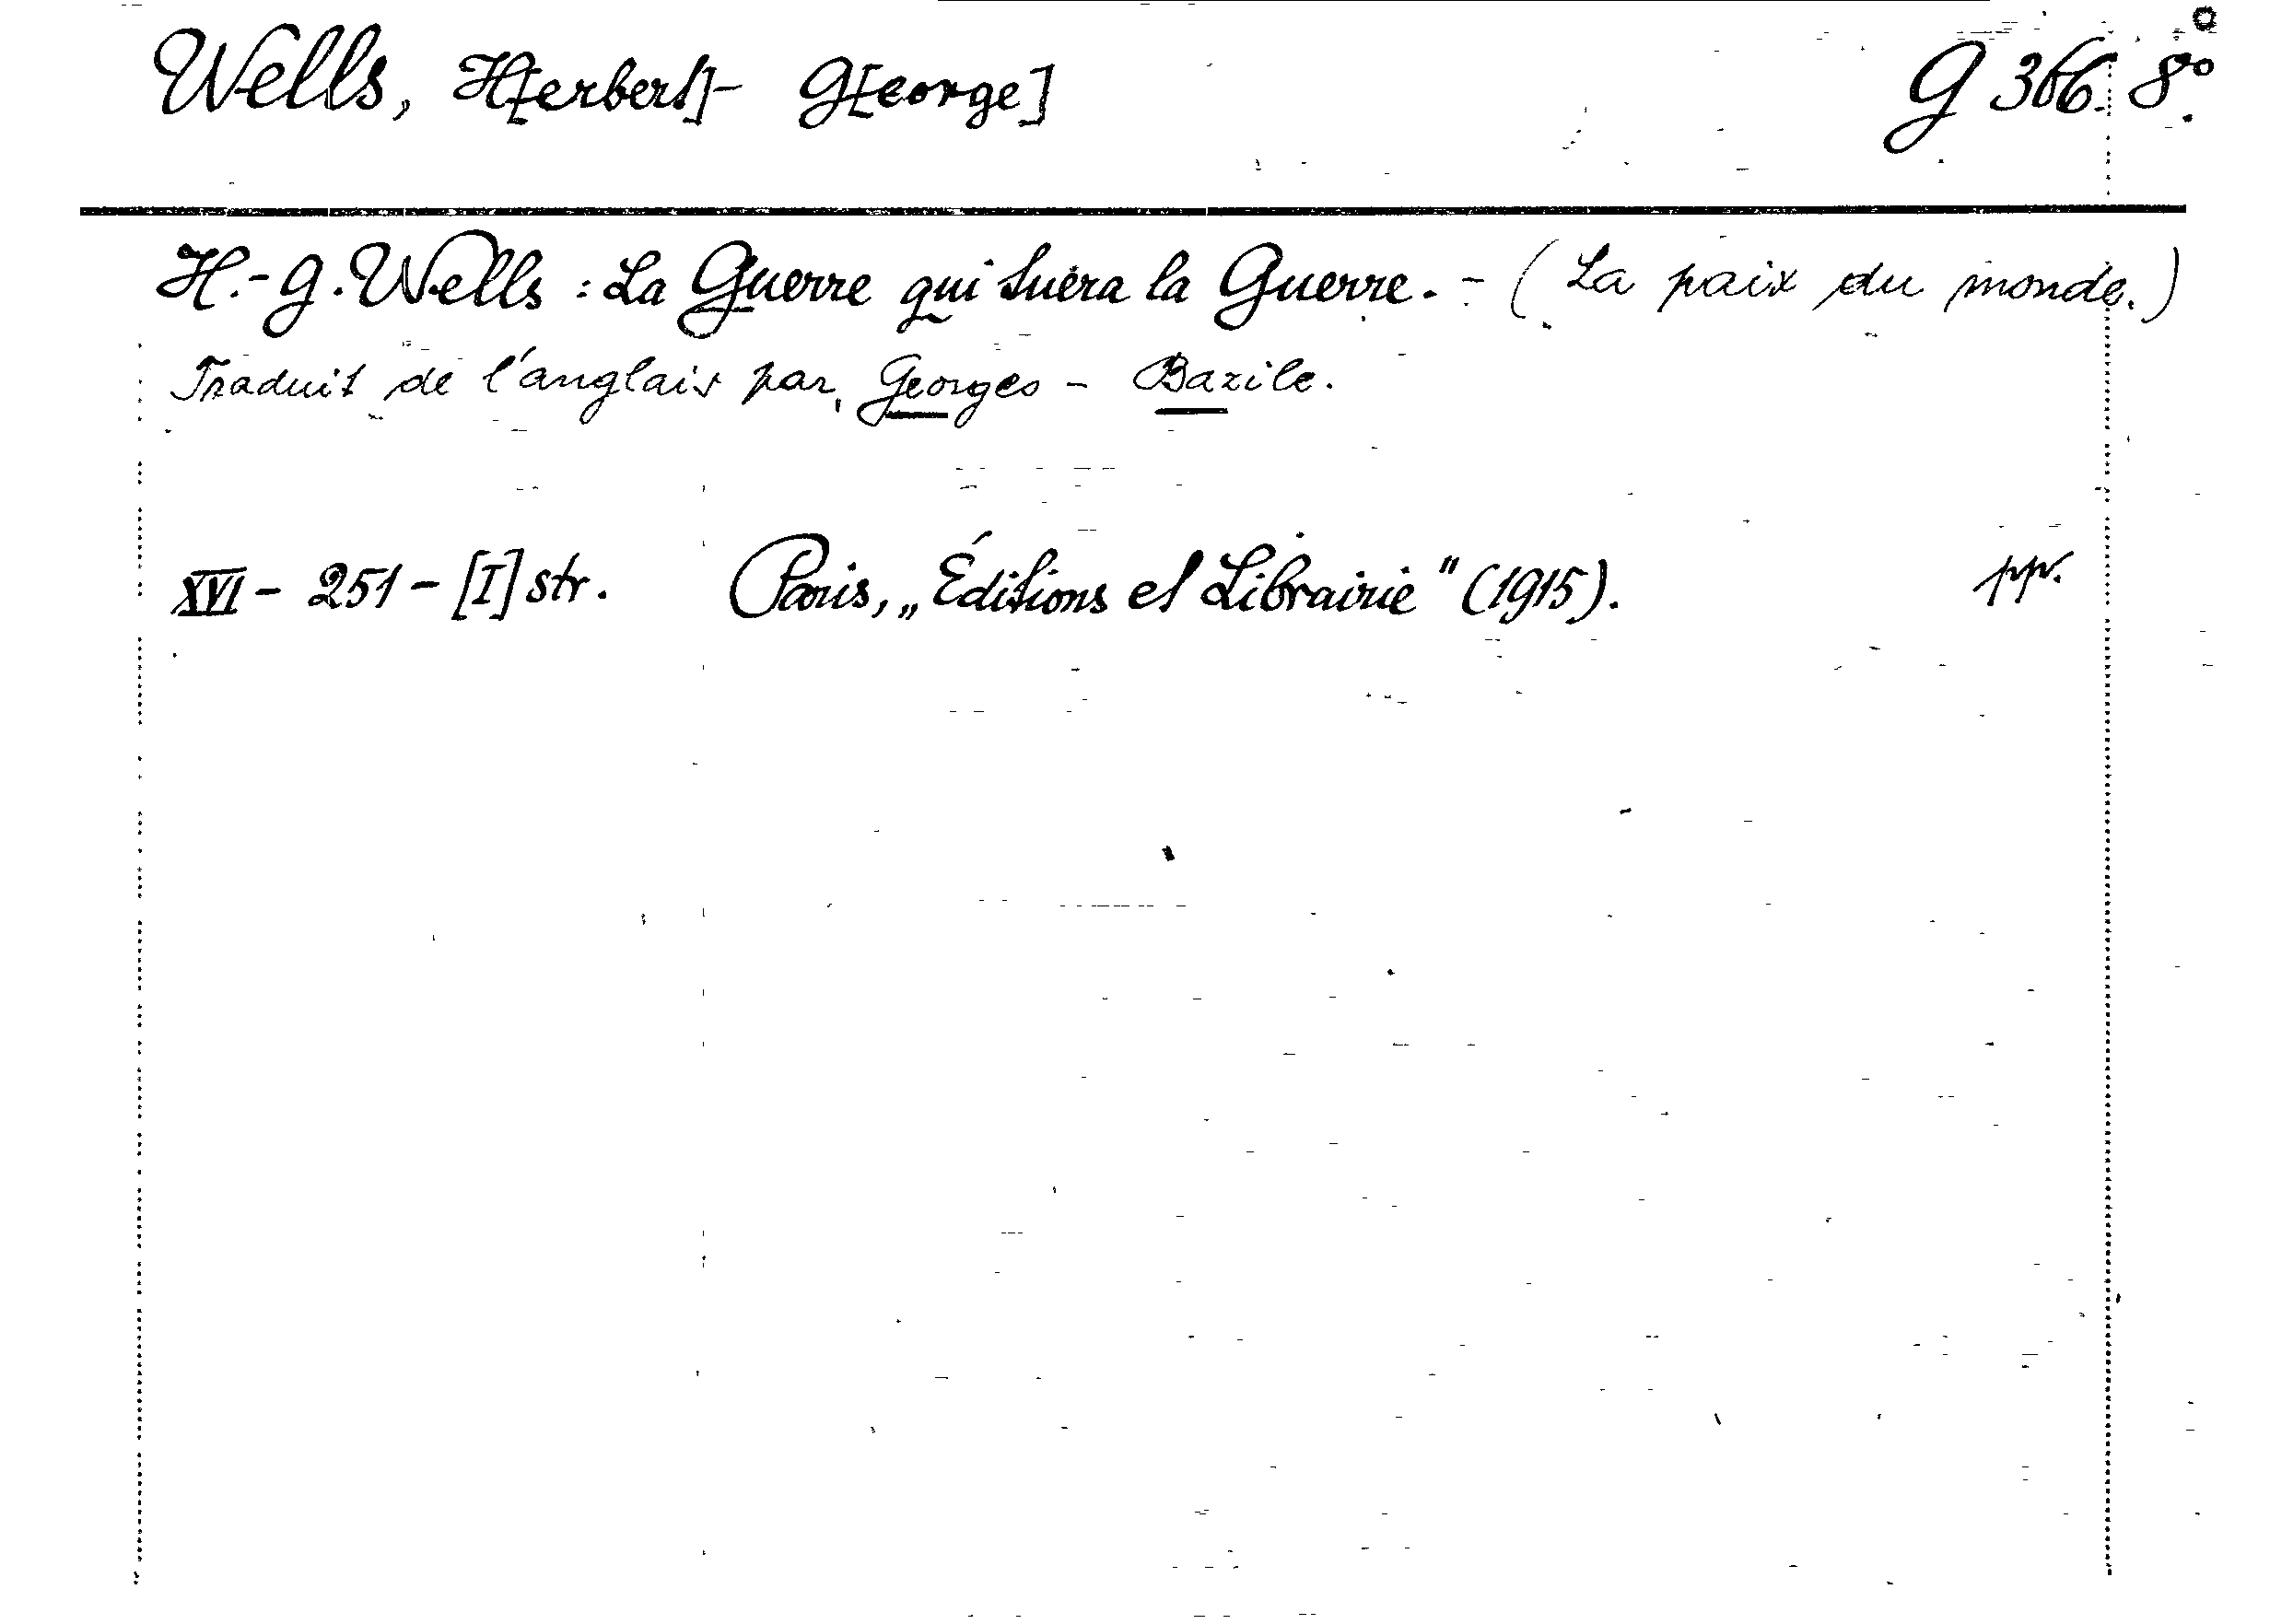 Wells, H[erbert]- G[eorge] G 366. 8°.
H.-G. Wells : La Guerre qui tuera la Guerre. - (La paix du monde.)
Traduit de l'anglais par Georges - Bazile.
XVI - 251 - [I] str. Paris, „Éditions et Librairie" (1915). ppr.